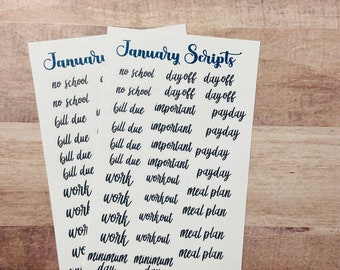 January
no school
no school
bill due
bill due
bill due
bill due
work
work
work
work
January Scripts
no school day off day off
no school day off day off
bill due important payday
bill due important payday
bill due important payday
bill due important payday
work workout meal plan
work workout meal plan
work workout meal plan
work workout meal plan
minimum minimum
day